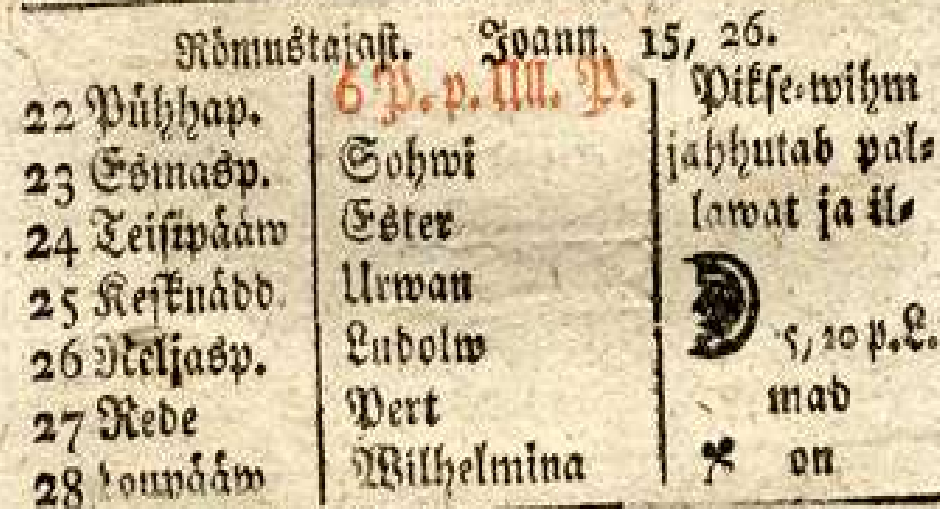 Römustajast. Joann. 15, 26.
22 Pühhap. 6 P. p. Ull. P. Pikse-wihm
23 Esmasp. Sohwi jahhutab pal-
24 Teisipääw Ester lawat ja il-
25 Kesknädd. Urwan
26 Neljasp. Ludolw 5, 20 p.L.
27 Rede Pert mad
28 Loupääw Wilhelmina on